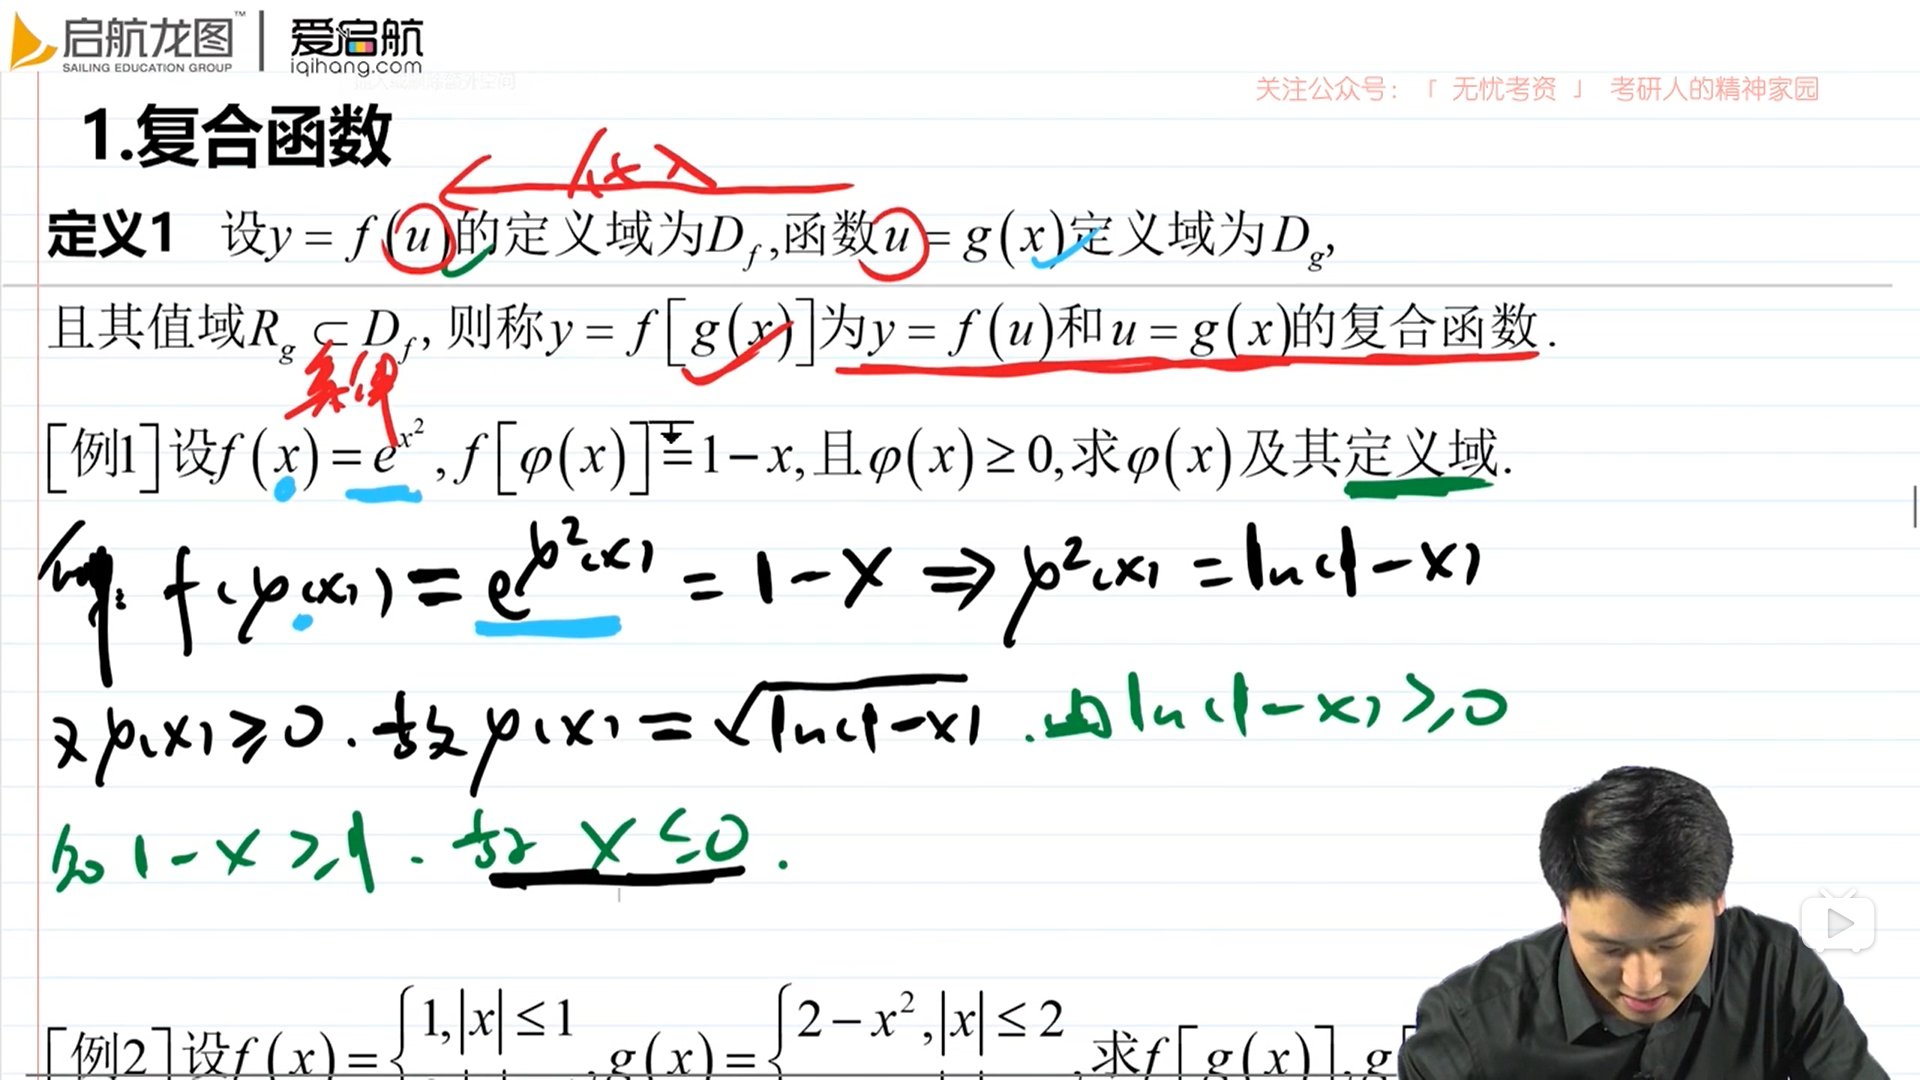 启航龙图™ | 爱启航
SAILING EDUCATION GROUP iqihang.com
关注公众号:「 无忧考资 」 考研人的精神家园
1.复合函数
定义1 设y = f(u)的定义域为D_f,函数u = g(x)定义域为D_g,
且其值域R_g ⊂ D_f, 则称y = f[g(x)]为y = f(u)和u = g(x)的复合函数.
[例1]设f(x) = e^{x^2}, f[φ(x)] = 1 − x, 且φ(x) ≥ 0, 求φ(x)及其定义域.
f(φ(x)) = e^{φ²(x)} = 1 − x ⇒ φ²(x) = ln(1 − x)
又φ(x) ≥ 0. 故φ(x) = √ln(1−x) . 由ln(1−x) ≥ 0
知 1 − x ≥ 1 . 故 x ≤ 0 .
[例2]设f(x) = { 1, |x| ≤ 1 , g(x) = { 2 − x², |x| ≤ 2 , 求f[g(x)], g[